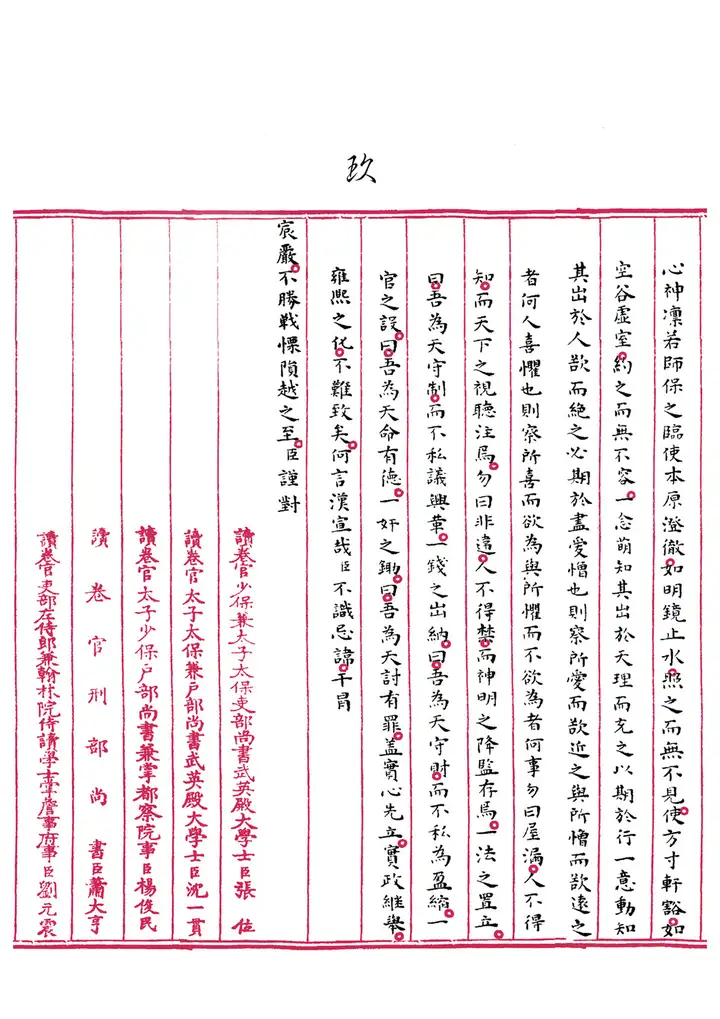 玖
心神凜若師保之臨使本原澄徹如明鏡止水照之而無不見使方寸軒豁如
空谷虛室約之而無不容一念萌知其出於天理而充之以期於行一意動知
其出於人欲而絶之必期於盡愛憎也則察所愛而欲近之與所憎而欲遠之
者何人喜懼也則察所喜而欲為與所懼而不欲為者何事勿曰屋漏人不得
知而天下之視聽注焉勿曰非違人不得禁而神明之降監存焉一法之置立
曰吾為天守制而不私議興革一錢之出納曰吾為天守財而不私為盈縮一
官之設曰吾為天命有德一奸之鋤曰吾為天討有罪蓋實心先立實政繼舉
雍熙之化不難致矣何言漢宣哉臣不識忌諱干冒
宸嚴不勝戰慄隕越之至臣謹對
讀卷官少保兼太子太保吏部尚書武英殿大學士臣張位
讀卷官太子太保兼戶部尚書武英殿大學士臣沈一貫
讀卷官太子少保戶部尚書兼掌都察院事臣楊俊民
讀卷官刑部尚書臣蕭大亨
讀卷官吏部左侍郎兼翰林院侍讀學士掌詹事府事臣劉元震